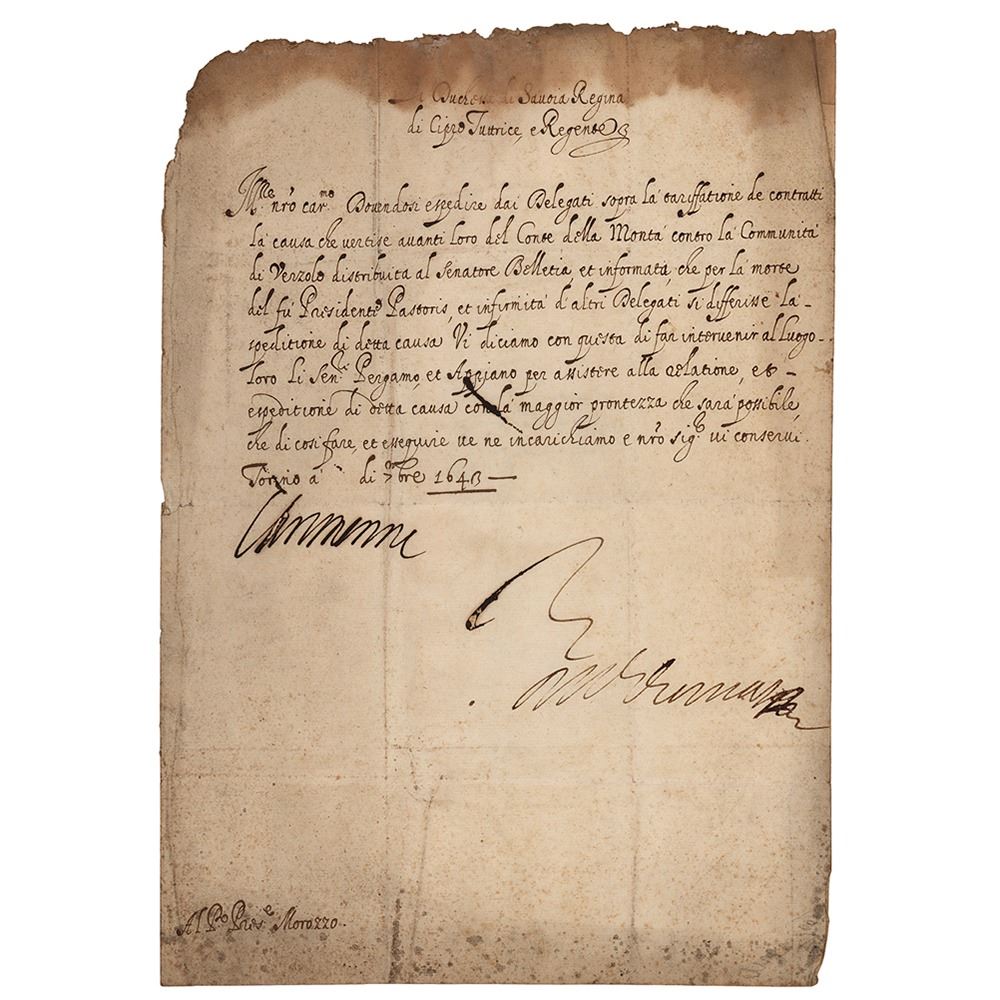 La Duchessa di Savoia Regina
di Cipro Tuttrice, e Regente
M.lto nr̃o car.mo Dovendosi espedire dai Delegati sopra la tariffatione de contratti
la causa che vertise avanti loro del Conte della Montà contro la Communità
di Verzolo distribuita al Senatore Belletia et informata, che per la morte
del fù Presidente Pastoris, et infirmità d'altri Delegati si differisse la
speditione di detta causa Vi diciamo con questa di far intervenir al Luogo
loro li Sen.ri Pergamo, et Appiano per assistere alla relatione, et
espeditione di detta causa con la maggior prontezza che sarà possibile,
che di cosi fare, et essequire ve ne incarichiamo e nr̃o sig.re vi conservi.
Torino a di 7bre 1643
Al P.o Pres.e Morozzo.